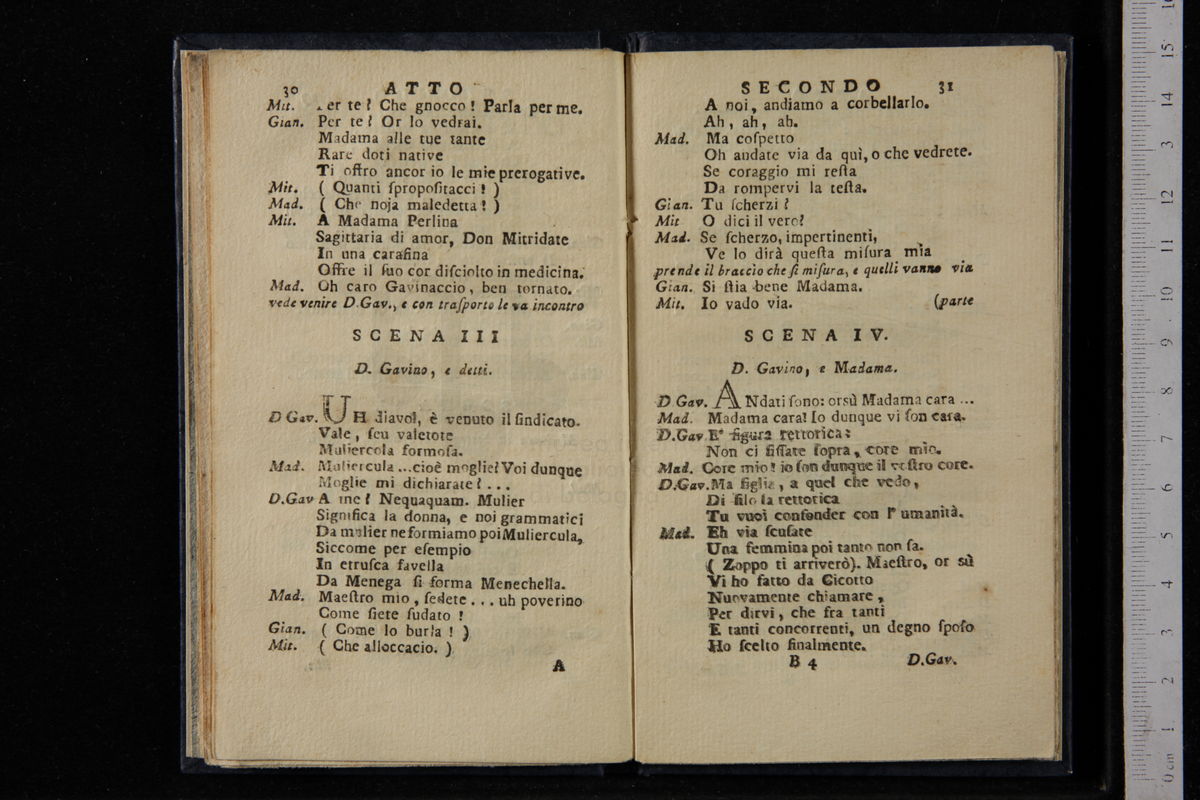 30 ATTO
Mit. er te? Che gnocco! Parla per me.
Gian. Per te? Or lo vedrai.
Madama alle tue tante
Rare doti native
Ti offro ancor io le mie prerogative.
Mit. ( Quanti ſpropoſitacci! )
Mad. ( Che noja maledetta! )
Mit. A Madama Perlina
Sagittaria di amor, Don Mitridate
In una carafina
Offre il ſuo cor diſciolto in medicina.
Mad. Oh caro Gavinaccio, ben tornato.
vede venire D.Gav., e con traſporto le va incontro
SCENA III
D. Gavino, e detti.
D Gav. UH diavol, è venuto il ſindicato.
Vale, ſeu valetote
Muliercola formoſa.
Mad. Muliercula ... cioè moglie? Voi dunque
Moglie mi dichiarate? ...
D.Gav A me? Nequaquam. Mulier
Significa la donna, e noi grammatici
Da mulier ne formiamo poi Muliercula,
Siccome per eſempio
In etruſca favella
Da Menega ſi forma Menechella.
Mad. Maeſtro mio, ſedete ... uh poverino
Come ſiete ſudato!
Gian. ( Come lo burla! )
Mit. ( Che alloccacio. )
A
SECONDO 31
A noi, andiamo a corbellarlo.
Ah, ah, ah.
Mad. Ma coſpetto
Oh andate via da quì, o che vedrete.
Se coraggio mi reſta
Da rompervi la teſta.
Gian. Tu ſcherzi?
Mit O dici il vero?
Mad. Se ſcherzo, impertinenti,
Ve lo dirà queſta miſura mia
prende il braccio che ſi miſura, e quelli vanno via
Gian. Si ſtia bene Madama.
Mit. Io vado via. (parte
SCENA IV.
D. Gavino, e Madama.
D Gav. ANdati ſono: orsù Madama cara ...
Mad. Madama cara! Io dunque vi ſon cara.
D.Gav E' figura rettorica:
Non ci fiſſate ſopra, core mio.
Mad. Core mio! io ſon dunque il voſtro core.
D.Gav. Ma figlia, a quel che vedo,
Di filo la rettorica
Tu vuoi confonder con l' umanità.
Mad. Eh via ſcuſate
Una femmina poi tanto non ſa.
( Zoppo ti arriverò). Maeſtro, or sù
Vi ho fatto da Cicotto
Nuovamente chiamare,
Per dirvi, che fra tanti
E tanti concorrenti, un degno ſpoſo
Ho ſcelto finalmente.
B 4 D.Gav.